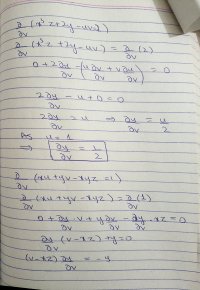 ∂/∂v (x²z+2y-uv=2)
∂/∂v (x²z+2y-uv) = ∂/∂v (2)
0+2∂y/∂v -(u∂v/∂v + v∂u/∂v) = 0
2∂y/∂v - u+0=0
2∂y/∂v = u ⇒ ∂y/∂v = u/2
As u=1
⇒ ∂y/∂v = 1/2
∂/∂v (xu+yv-xyz=1)
∂/∂v (xu+yv-xyz) = ∂/∂v (1)
0+∂y/∂v·v+y∂v/∂v -∂y/∂v·xz=0
∂y/∂v (v-xz)+y=0
(v-xz)∂y/∂v = -y